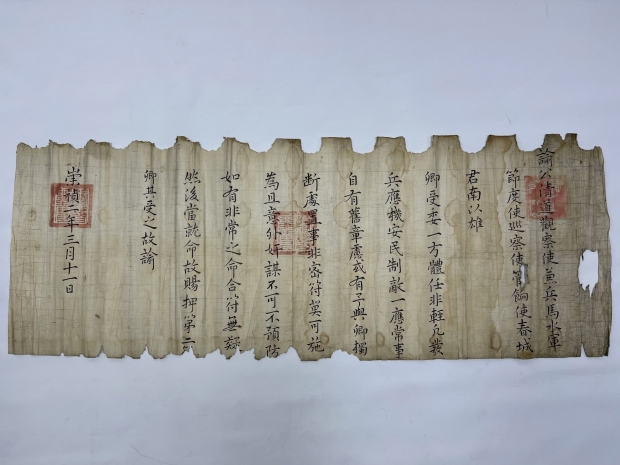 諭公清道觀察使兼兵馬水軍
節度使巡察使管餉使春城
君南以雄
卿受委一方體任非輕凡發
兵應機安民制敵一應常事
自有舊章慮或有予與卿獨
斷處置事非密符莫可施
為且意外奸謀不可不預防
如有非常之命合符無疑
然後當就命故賜押第二
卿其受之故諭
崇禎二年三月十一日